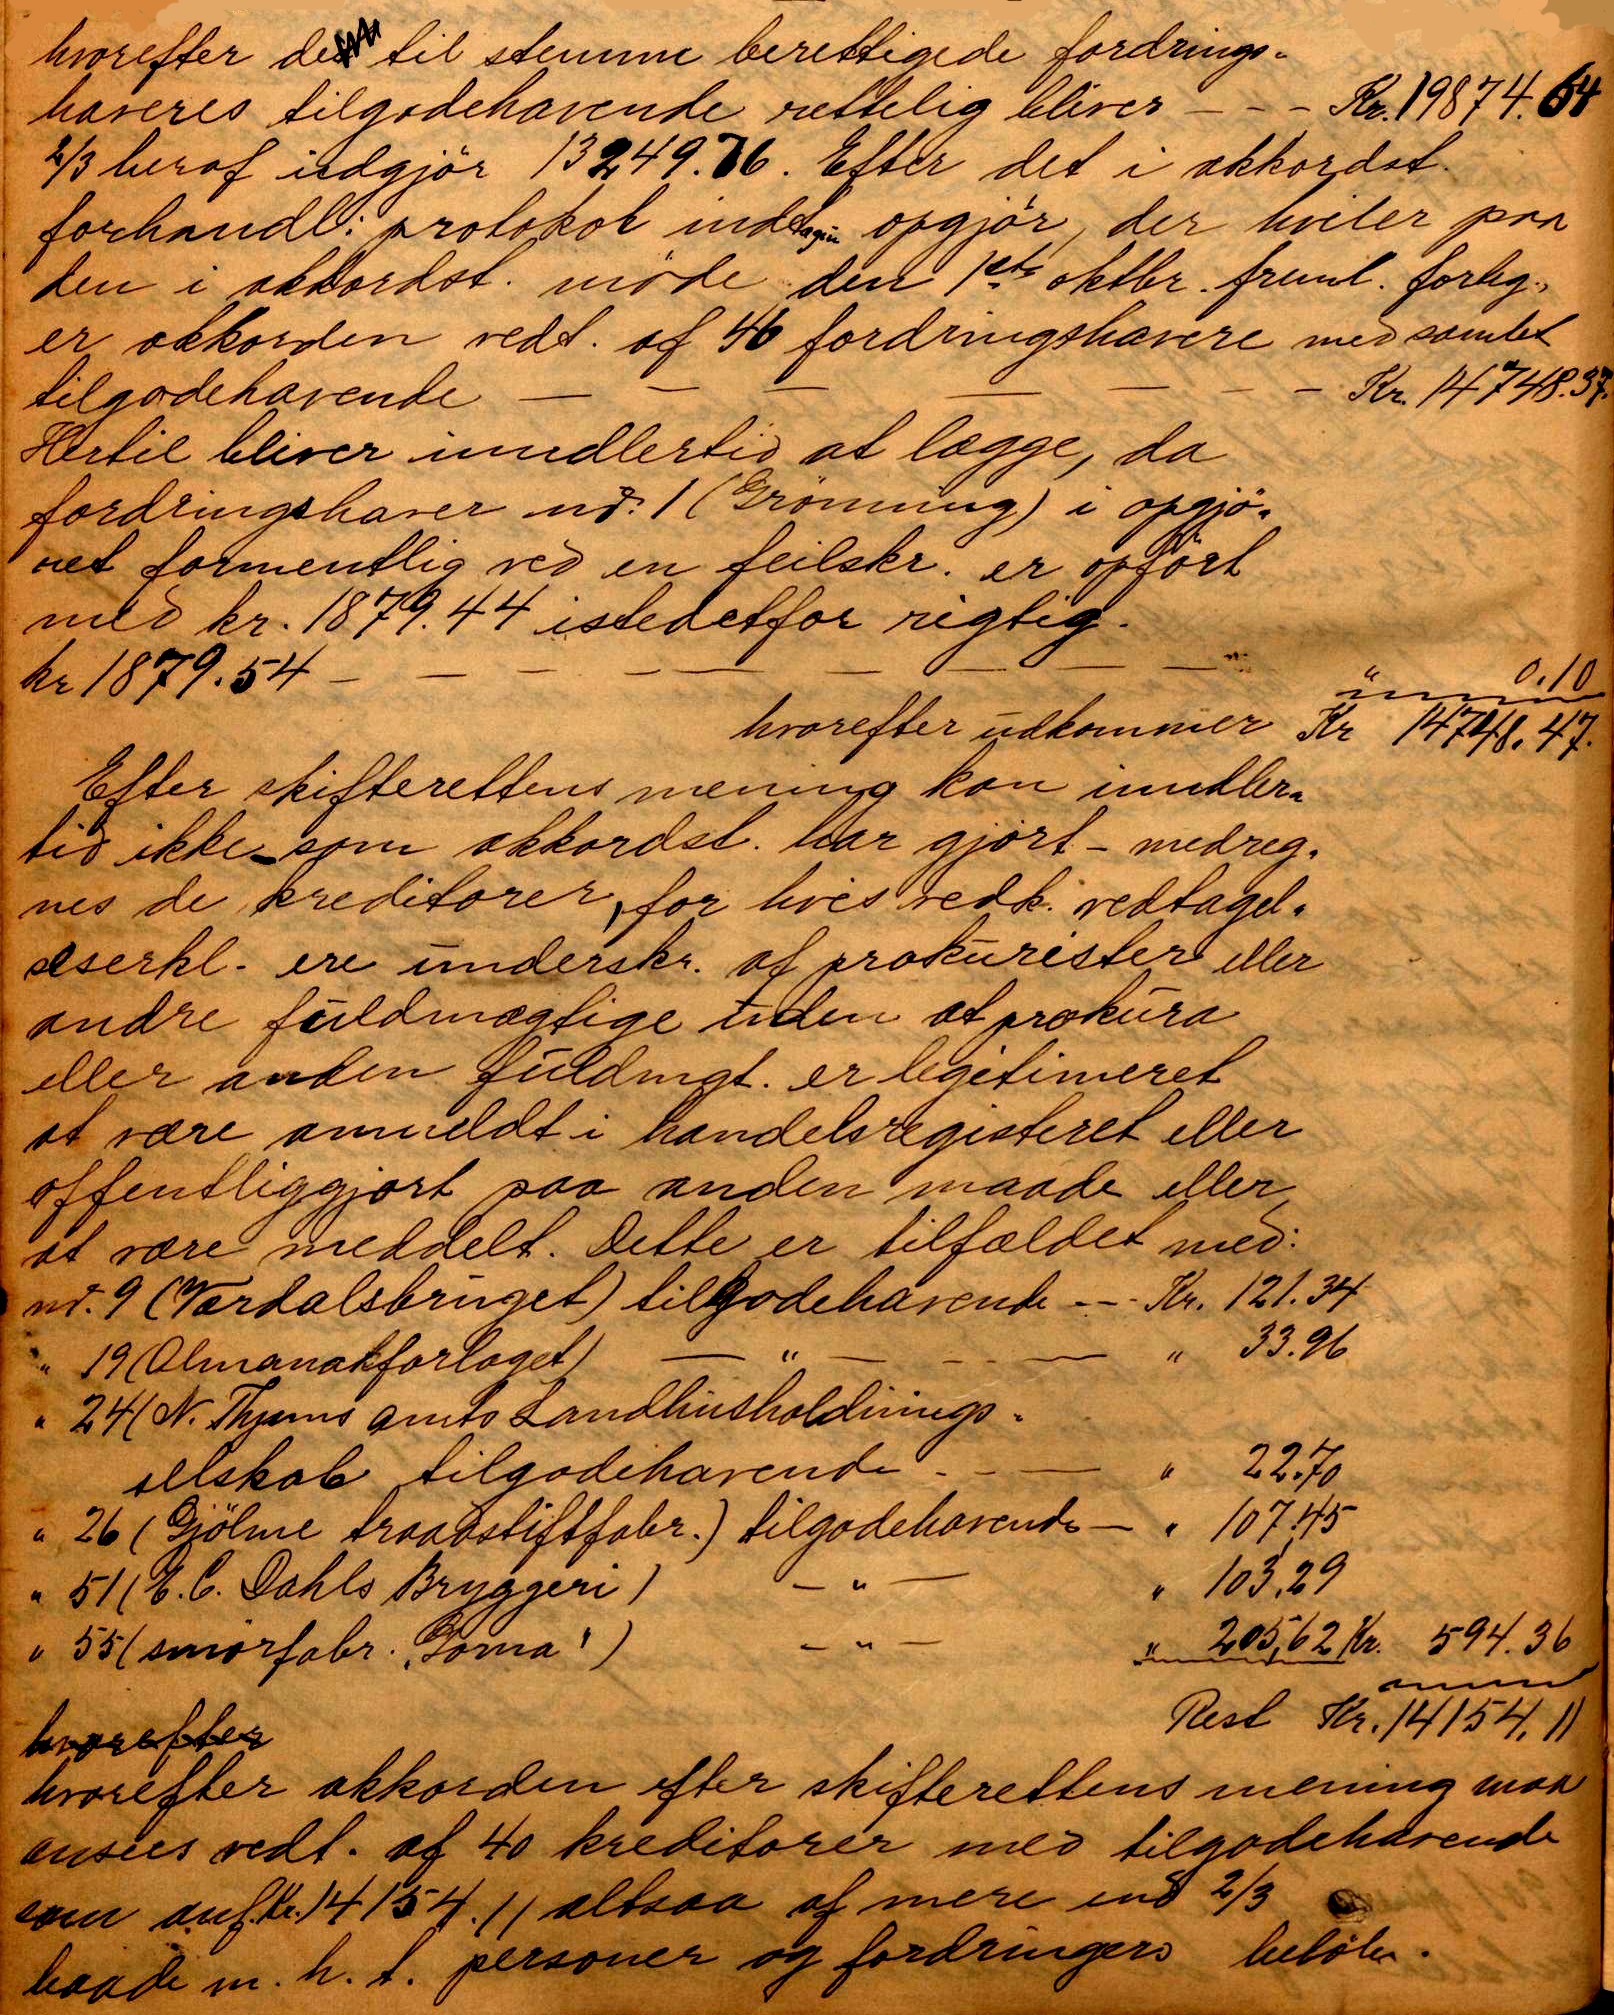 hvorefter de til stemme berettigede fordrings-
haveres tilgodehavende rettelig bliver - - - Kr. 19874.64
2/3 heraf udgjör 13249.76. Efter det i akkordst.
forhandl: protokol indtagne opgjör, der hviler paa
den i akkordst. möde den 1ste oktbr. freml. forteg.,
er akkorden vedt. af 46 fordringshavere med samlet
tilgodehavende — — — — — — — Kr. 14748.37.
Hertil bliver imidlertid at lægge, da
fordringshaver nr. 1 (Grönning) i opgjö-
ret formentlig ved en feilskr. er opfört
med kr. 1879.44 istedetfor rigtig.
kr 1879.54 — — — — — — — — — " 0.10
hvorefter udkommer Kr 14748.47.
Efter skifterettens mening kan imidler-
tid ikke - som akkordst. har gjort - medreg-
nes de kreditorer, for hvis vedk. vedtagel-
seserkl. ere underskr. af prokurister eller
andre fuldmægtige uden at prokura
eller anden fuldmgt. er legitimeret
at være anmeldt i handelsregisteret eller
offentliggjort paa anden maade eller
at være meddelt. Dette er tilfældet med:
nr. 9 (Værdalsbruget) tilgodehavende - - - Kr. 121.34
" 19 (Almanakforlaget) — " — - - — " 33.96
" 24 (N. Thjems amts Landhusholdnings-
selskab tilgodehavende - - - — " 22.70
" 26 (Gjölme traadstiftfabr.) tilgodehavende — " 107.45
" 51 (E. C. Dahls Bryggeri) — " — " 103,29
" 55 (smörfabr. "Goma") — " — " 205,62 Kr. 594.36
Rest Kr. 14154.11
hvorefter
hvorefter akkorden efter skifterettens mening maa
ansees vedt. af 40 kreditorer med tilgodehavende
som anf. Kr. 14154.11 altsaa af mere end 2/3
baade m. h. t. personer og fordringers belöb.